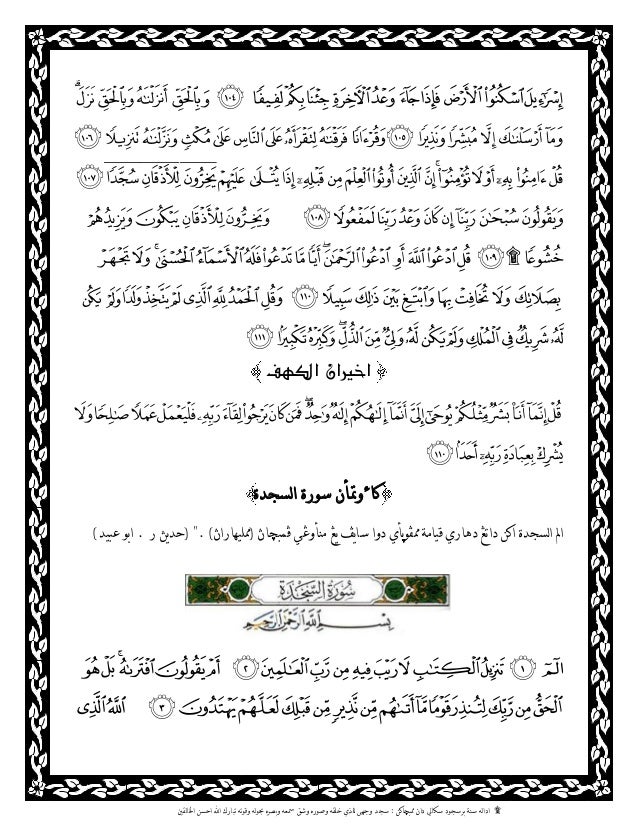 إِسْرَٰٓءِيلَ ٱسْكُنُوا۟ ٱلْأَرْضَ فَإِذَا جَآءَ وَعْدُ ٱلْءَاخِرَةِ جِئْنَا بِكُمْ لَفِيفًا ﴿١٠٤﴾ وَبِٱلْحَقِّ أَنزَلْنَٰهُ وَبِٱلْحَقِّ نَزَلَ ۗ
وَمَآ أَرْسَلْنَٰكَ إِلَّا مُبَشِّرًا وَنَذِيرًا ﴿١٠٥﴾ وَقُرْءَانًا فَرَقْنَٰهُ لِتَقْرَأَهُۥ عَلَى ٱلنَّاسِ عَلَىٰ مُكْثٍ وَنَزَّلْنَٰهُ تَنزِيلًا ﴿١٠٦﴾
قُلْ ءَامِنُوا۟ بِهِۦٓ أَوْ لَا تُؤْمِنُوٓا۟ ۚ إِنَّ ٱلَّذِينَ أُوتُوا۟ ٱلْعِلْمَ مِن قَبْلِهِۦٓ إِذَا يُتْلَىٰ عَلَيْهِمْ يَخِرُّونَ لِلْأَذْقَانِ سُجَّدًا ﴿١٠٧﴾
وَيَقُولُونَ سُبْحَٰنَ رَبِّنَآ إِن كَانَ وَعْدُ رَبِّنَا لَمَفْعُولًا ﴿١٠٨﴾ وَيَخِرُّونَ لِلْأَذْقَانِ يَبْكُونَ وَيَزِيدُهُمْ
خُشُوعًا ۩ ﴿١٠٩﴾ قُلِ ٱدْعُوا۟ ٱللَّهَ أَوِ ٱدْعُوا۟ ٱلرَّحْمَٰنَ ۖ أَيًّا مَّا تَدْعُوا۟ فَلَهُ ٱلْأَسْمَآءُ ٱلْحُسْنَىٰ ۚ وَلَا تَجْهَرْ
بِصَلَاتِكَ وَلَا تُخَافِتْ بِهَا وَٱبْتَغِ بَيْنَ ذَٰلِكَ سَبِيلًا ﴿١١٠﴾ وَقُلِ ٱلْحَمْدُ لِلَّهِ ٱلَّذِى لَمْ يَتَّخِذْ وَلَدًا وَلَمْ يَكُن
لَّهُۥ شَرِيكٌ فِى ٱلْمُلْكِ وَلَمْ يَكُن لَّهُۥ وَلِىٌّ مِّنَ ٱلذُّلِّ ۖ وَكَبِّرْهُ تَكْبِيرًۢا ﴿١١١﴾
﴿ اخيران الكهف ﴾
قُلْ إِنَّمَآ أَنَا۠ بَشَرٌ مِّثْلُكُمْ يُوحَىٰٓ إِلَىَّ أَنَّمَآ إِلَٰهُكُمْ إِلَٰهٌ وَٰحِدٌ ۖ فَمَن كَانَ يَرْجُوا۟ لِقَآءَ رَبِّهِۦ فَلْيَعْمَلْ عَمَلًا صَٰلِحًا وَلَا
يُشْرِكْ بِعِبَادَةِ رَبِّهِۦٓ أَحَدًۢا ﴿١١٠﴾
﴿كأوتمأن سورة السجدة﴾
الم السجدة اكن داتڠ دهاري قيامة ممڤوڽاءي دوا سايڤ يڠ مناوڠي ڤمباچاڽ (ممليهاراڽ) ." (حديث ر . ابو عبيد )
سُورَةُ السَّجْدَةِ
بِسْمِ ٱللَّهِ ٱلرَّحْمَٰنِ ٱلرَّحِيمِ
الٓمٓ ﴿١﴾ تَنزِيلُ ٱلْكِتَٰبِ لَا رَيْبَ فِيهِ مِن رَّبِّ ٱلْعَٰلَمِينَ ﴿٢﴾ أَمْ يَقُولُونَ ٱفْتَرَىٰهُ ۚ بَلْ هُوَ
ٱلْحَقُّ مِن رَّبِّكَ لِتُنذِرَ قَوْمًا مَّآ أَتَىٰهُم مِّن نَّذِيرٍ مِّن قَبْلِكَ لَعَلَّهُمْ يَهْتَدُونَ ﴿٣﴾ ٱللَّهُ ٱلَّذِى
۩ اداله سنة برسجود سكالي دان ممباچاكن : سجد وجهي للذي خلقه وصوره وشق سمعه وبصره بحوله وقوته تبارك الله احسن الخالقين